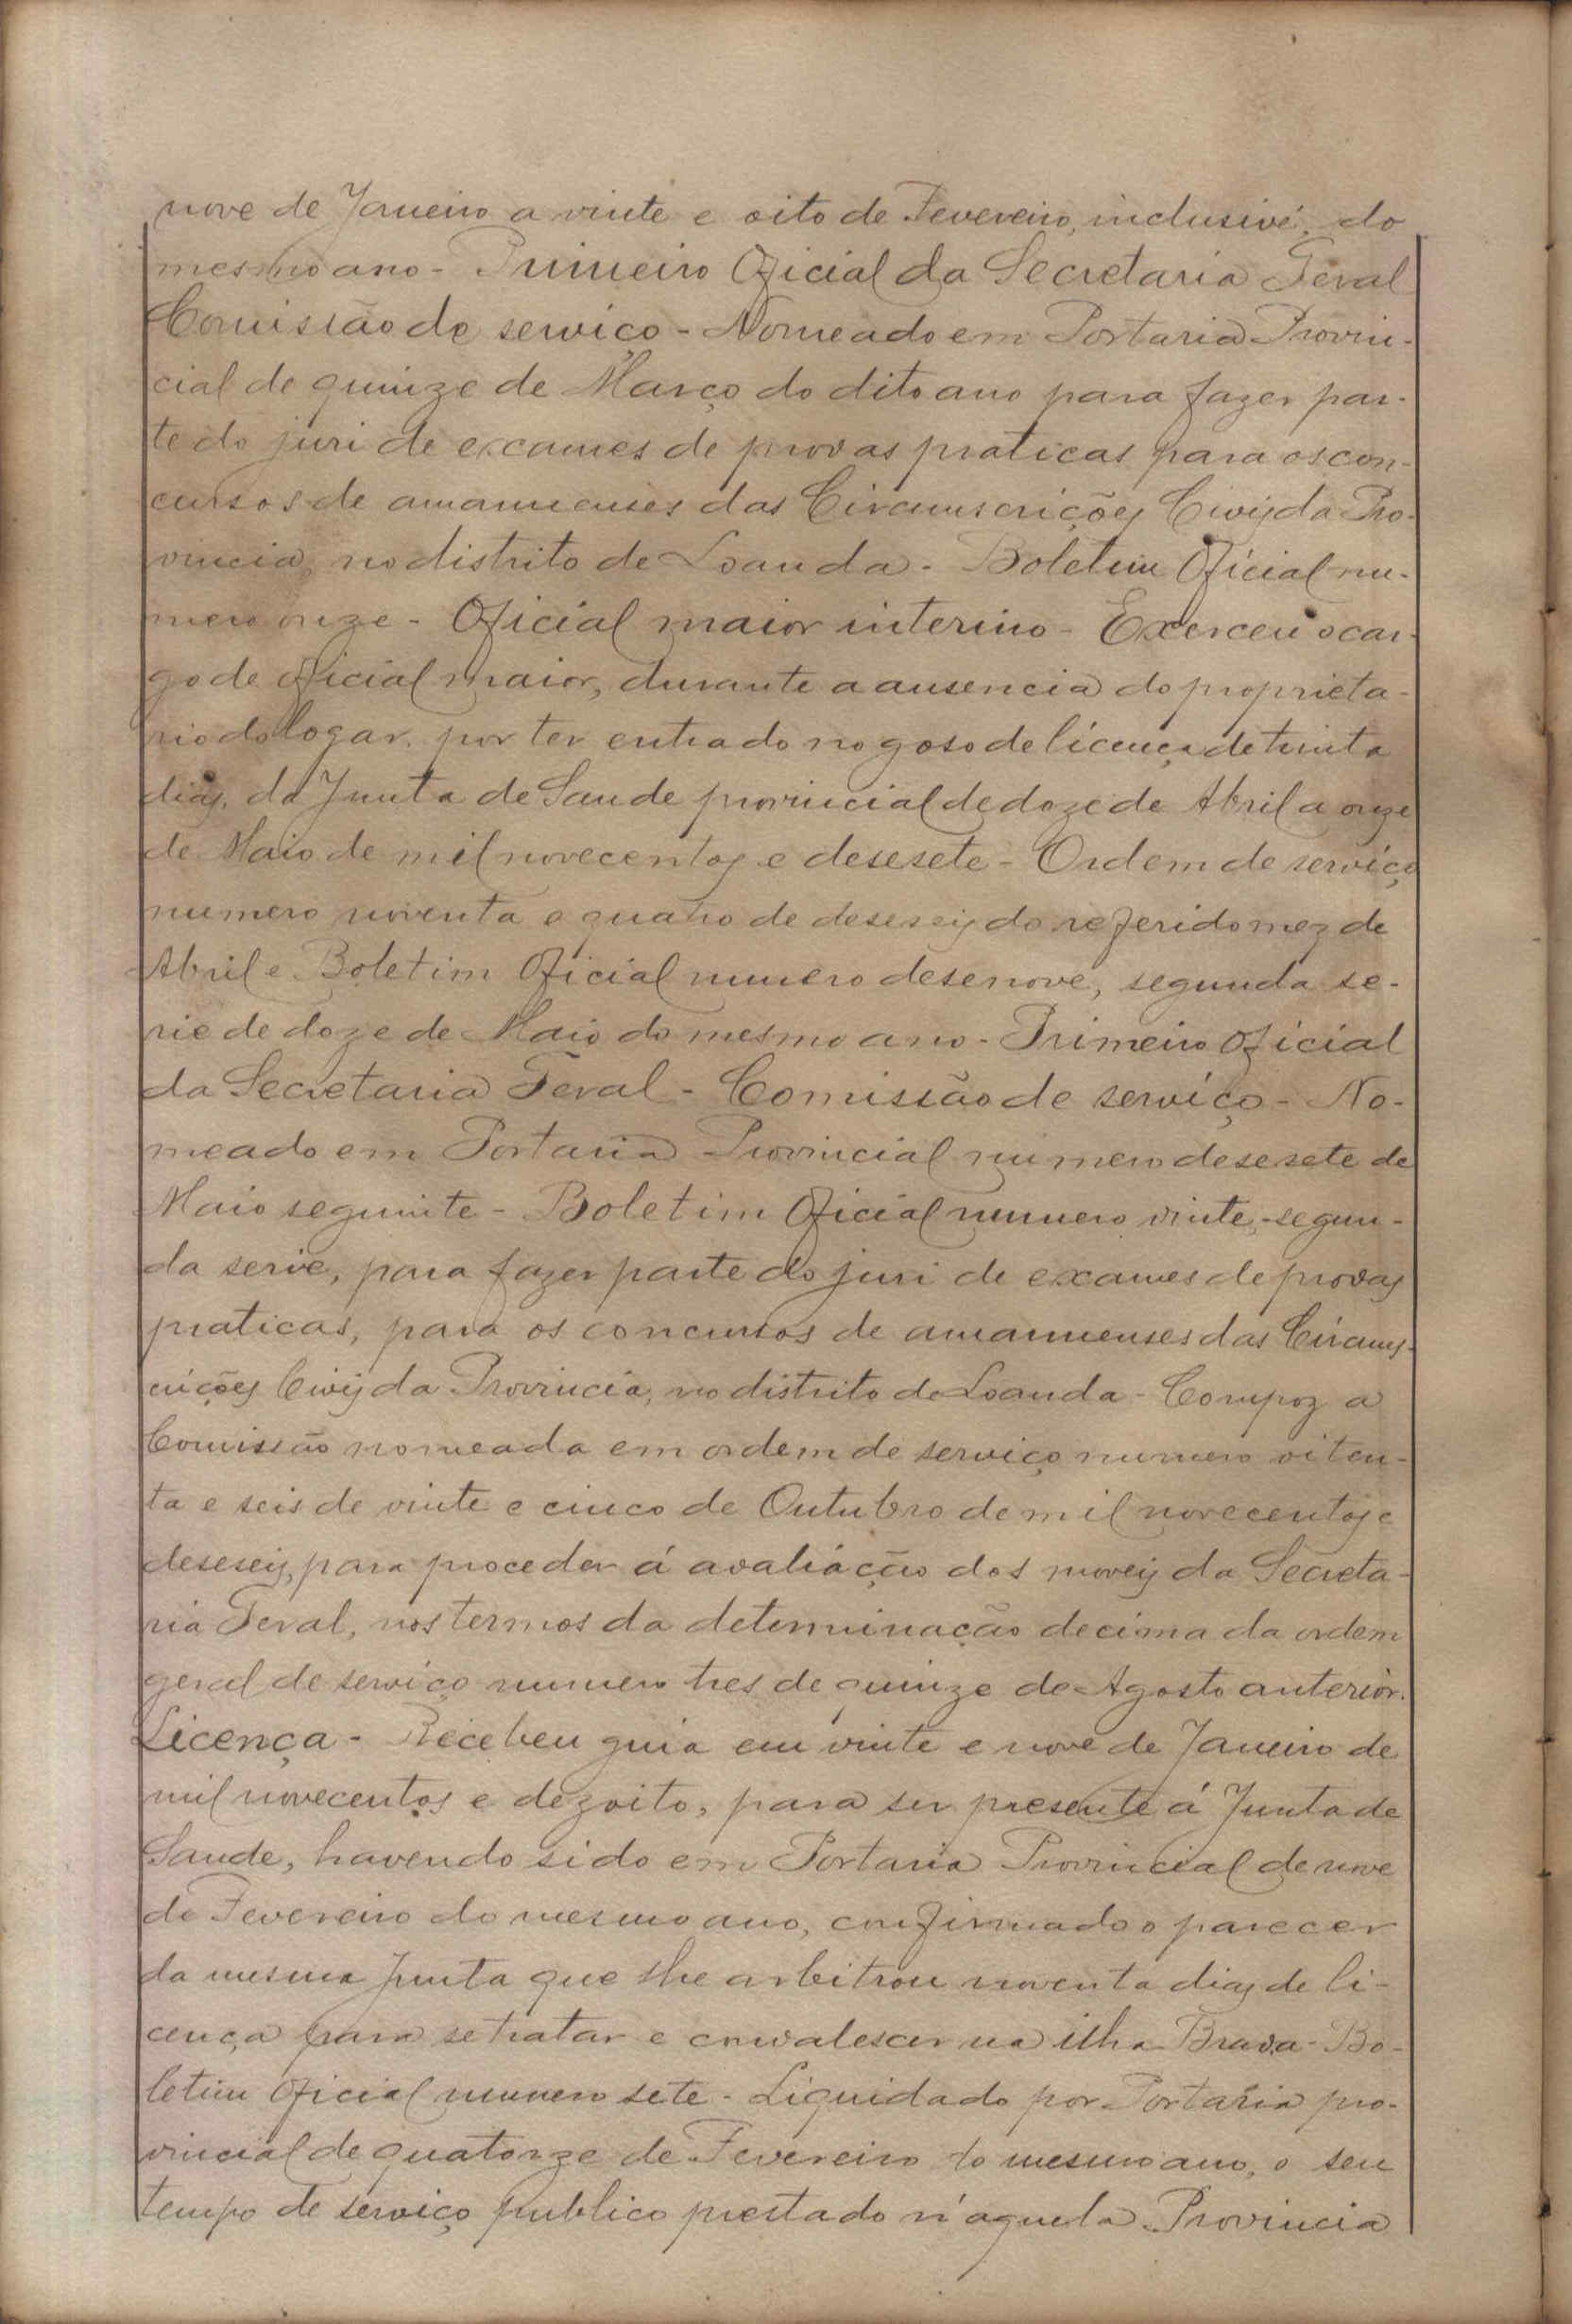 nove de Janeiro a vinte e oito de Fevereiro, inclusivé, do
mesmo ano - Primeiro Oficial da Secretaria Geral
Comissão de serviço - Nomeado em Portaria Provin-
cial de quinze de Março do dito ano para fazer par-
te do juri de exames de provas praticas para os con-
cursos de amanuenses das Circunscrições Civis da Pro-
vincia, no distrito de Loanda - Boletim Oficial nu-
mero onze - Oficial maior interino - Exerceu o car-
go de oficial maior, durante a ausencia do proprieta-
rio do logar, por ter entrado no goso de licença de trinta
dias, da Junta de Saude provincial de doze de Abril a onze
de Maio de mil novecentos e desesete - Ordem de serviço
numero noventa e quatro de deseseis do referido mez de
Abril e Boletim Oficial numero desenove, segunda se-
rie de doze de Maio do mesmo ano - Primeiro Oficial
da Secretaria Geral - Comissão de serviço - No-
meado em Portaria Provincial numero desesete de
Maio seguinte - Boletim Oficial numero vinte, segun-
da serie, para fazer parte do juri de exames de provas
praticas, para os concursos de amanuenses das Circuns-
crições Civis da Provincia, no distrito de Loanda - Compoz a
Comissão nomeada em ordem de serviço numero oiten-
ta e seis de vinte e cinco de Outubro de mil novecentos e
deseseis, para proceder á avaliação dos moveis da Secreta-
ria Geral, nos termos da determinação decima da ordem
geral de serviço numero tres de quinze de Agosto anterior.
Licença - Recebeu guia em vinte e nove de Janeiro de
mil novecentos e dezoito, para ser presente á Junta de
Saude, havendo sido em Portaria Provincial de nove
de Fevereiro do mesmo ano, confirmado o parecer
da mesma Junta que lhe arbitrou noventa dias de li-
cença para se tratar e convalescer na ilha Brava - Bo-
letim Oficial numero sete - Liquidado por Portaria pro-
vincial de quatorze de Fevereiro do mesmo ano, o seu
tempo de serviço publico prestado n'aquela Provincia